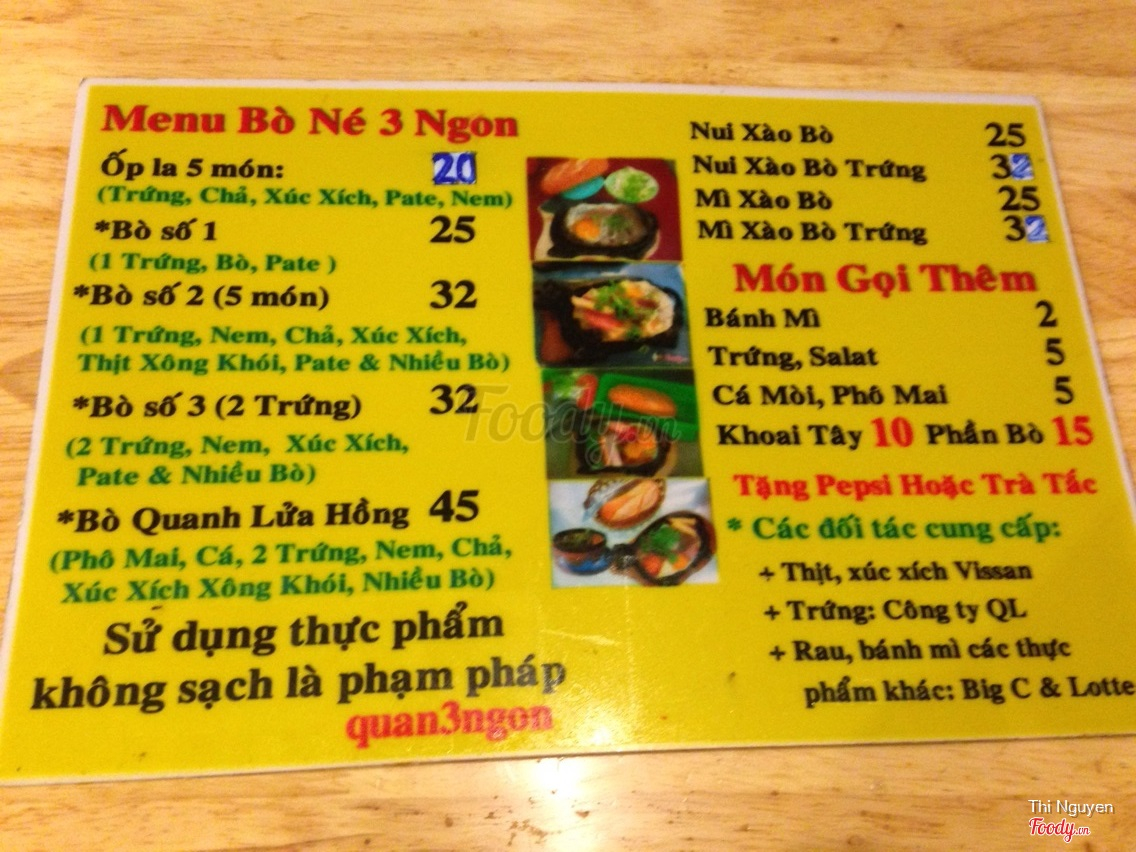 Menu Bò Né 3 Ngon
Ốp la 5 món: 20
(Trứng, Chả, Xúc Xích, Pate, Nem)
*Bò số 1 25
(1 Trứng, Bò, Pate )
*Bò số 2 (5 món) 32
(1 Trứng, Nem, Chả, Xúc Xích,
Thịt Xông Khói, Pate & Nhiều Bò)
*Bò số 3 (2 Trứng) 32
(2 Trứng, Nem, Xúc Xích,
Pate & Nhiều Bò)
*Bò Quanh Lửa Hồng 45
(Phô Mai, Cá, 2 Trứng, Nem, Chả,
Xúc Xích Xông Khói, Nhiều Bò)
Sử dụng thực phẩm
không sạch là phạm pháp
quan3ngon
Nui Xào Bò 25
Nui Xào Bò Trứng 32
Mì Xào Bò 25
Mì Xào Bò Trứng 32
Món Gọi Thêm
Bánh Mì 2
Trứng, Salat 5
Cá Mòi, Phô Mai 5
Khoai Tây 10 Phần Bò 15
Tặng Pepsi Hoặc Trà Tắc
* Các đối tác cung cấp:
+ Thịt, xúc xích Vissan
+ Trứng: Công ty QL
+ Rau, bánh mì các thực
phẩm khác: Big C & Lotte
Foody.vn
Thi Nguyen
Foody.vn